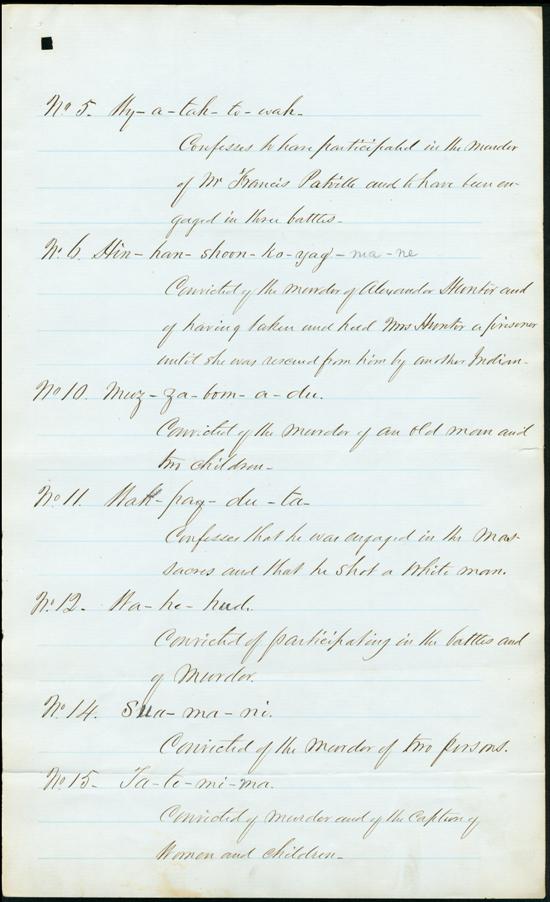 No 5. Hy-a-tah-to-wah.
Confesses to have participated in the murder
of Mr Francis Patville and to have been en-
gaged in three battles-
No. 6. Hin-han-shoon-ko-yag-ma-ne
Convicted of the murder of Alexander Hunter and
of having taken and held Mrs Hunter a prisoner
until she was rescued from him by another Indian-
No 10. Muz-za-bom-a-du.
Convicted of the murder of an old man and
two children-
No 11. Wah-pay-du-ta-
Confesses that he was engaged in the mas-
sacres and that he shot a White man.
No. 12- Wa-he-hud.
Convicted of participating in the battles and
of Murder.
No. 14. Sua-ma-ni.
Convicted of the murder of two persons.
No. 15- Ta-te-mi-ma.
Convicted of murder and of the caption of
Women and children-